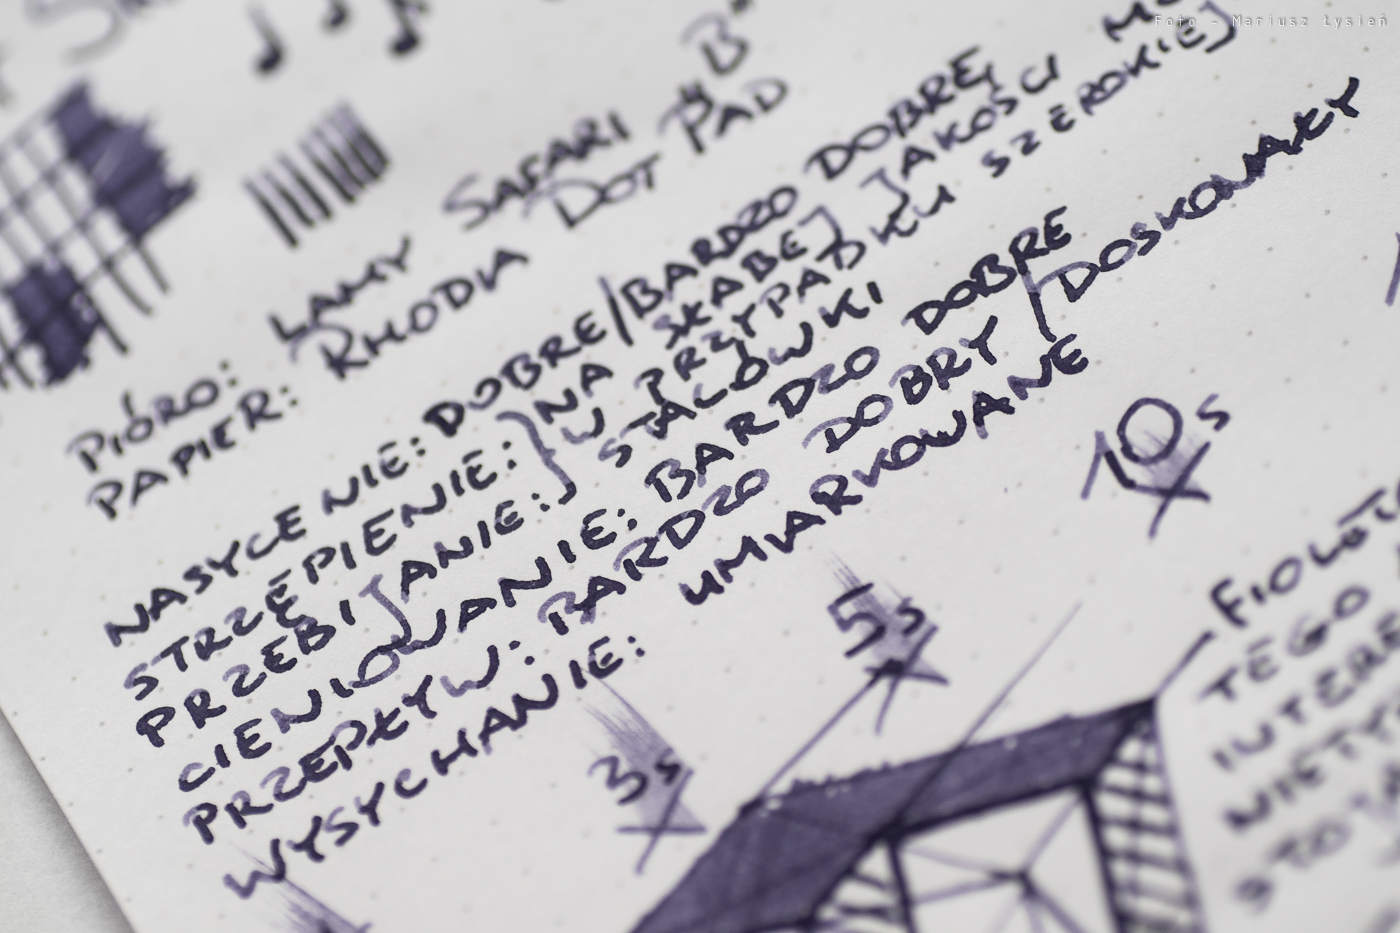 Foto - Mariusz Łysień
PIÓRO: LAMY SAFARI "B"
PAPIER: RHODIA DOT PAD
NASYCENIE: DOBRE/BARDZO DOBRE
STRZĘPIENIE: } NA SŁABEJ JAKOŚCI
PRZEBIJANIE: } W PRZYPADKU SZEROKIEJ
STALÓWKI
CIENIOWANIE: BARDZO DOBRE
PRZEPŁYW: BARDZO DOBRY / DOSKONAŁY
WYSYCHANIE: UMIARKOWANE
10s
5s
3s
TEGO